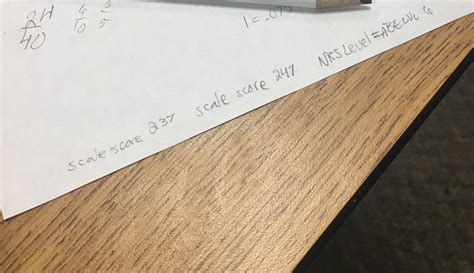 24 4 3
40 6 5
1 = .075
scale score 237 scale score 247 NRS Level = ABE LVL